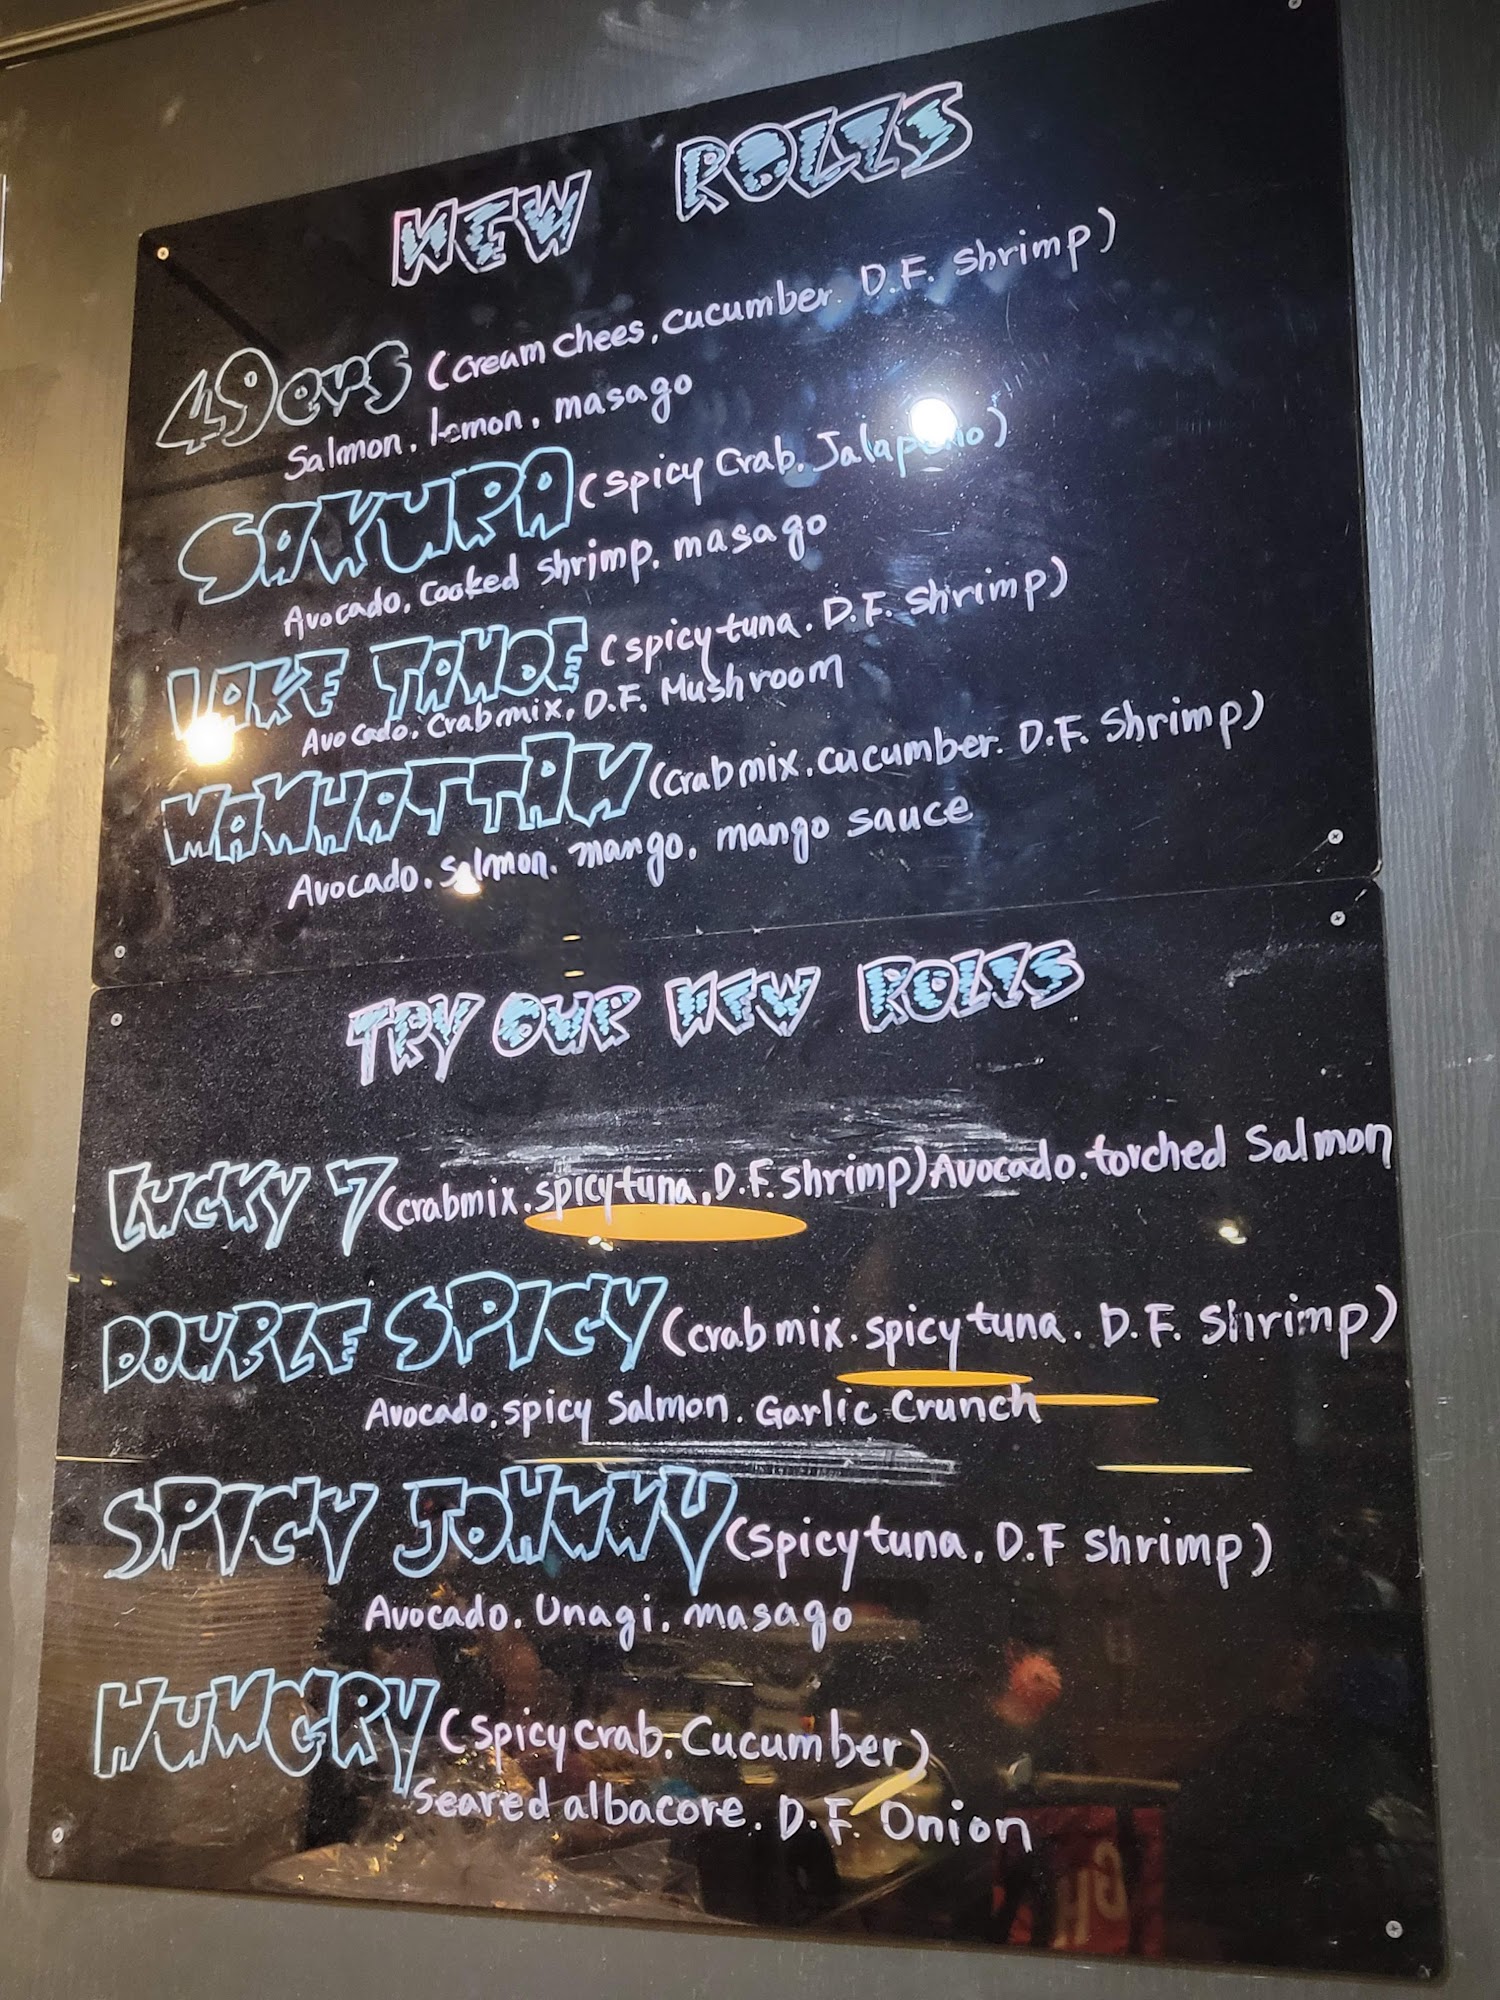 NEW ROLLS
49ers (Cream Chees, Cucumber. D.F. Shrimp)
Salmon, lemon, masago
SAKURA (Spicy Crab. Jalapeno)
Avocado, Cooked Shrimp, masago
LAKE TAHOE (spicy tuna. D.F. Shrimp)
Avocado, Crab mix, D.F. Mushroom
MANHATTAN (Crab mix, cucumber. D.F. Shrimp)
Avocado, Salmon, mango, mango sauce
TRY OUR NEW ROLLS
LUCKY 7 (Crab mix, spicy tuna, D.F. Shrimp) Avocado. torched Salmon
DOUBLE SPICY (Crab mix. spicy tuna. D.F. Shrimp)
Avocado, spicy Salmon. Garlic Crunch
SPICY JOHNNY (Spicy tuna, D.F Shrimp)
Avocado, Unagi, masago
HUNGRY (Spicy Crab. Cucumber)
Seared albacore. D.F. Onion